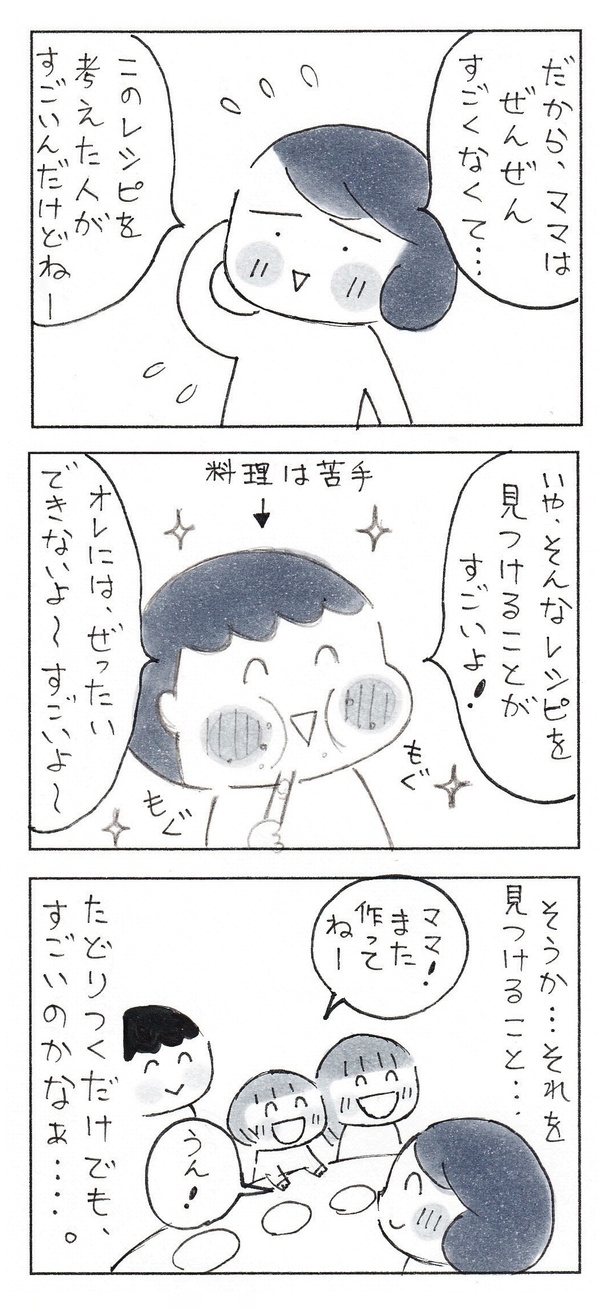 だから、ママは
ぜんぜん
すごくなくて…
このレシピを
考えた人が
すごいんだけどねー
料理は苦手
いや、そんなレシピを
見つけることが
すごいよ!
オレには、ぜったい
できないよ〜すごいよ〜
もぐ
もぐ
そうか…それを
見つけること…
ママ!
また
作って
ねー
うん!
たどりつくだけでも、
すごいのかなぁ….。